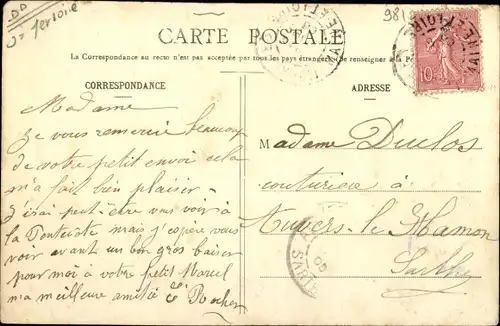 CARTE POSTALE
La Correspondance au recto n'est pas acceptée par tous les pays étrangers. Se renseigner à la
CORRESPONDANCE
ADRESSE
Madame
Je vous remercie beaucoup
de votre petit envoi cela
m'a fait bien plaisir
j'irai peut-être vous voir à
la Pentecote mais j'espère vous
voir avant un bon gros baiser
pour moi à votre petit Marcel
ma meilleure amitié Rocher
10
MAINE ET LOIRE
Madame Duclos
couturière à
Auvers-le-Hamon
Sarthe